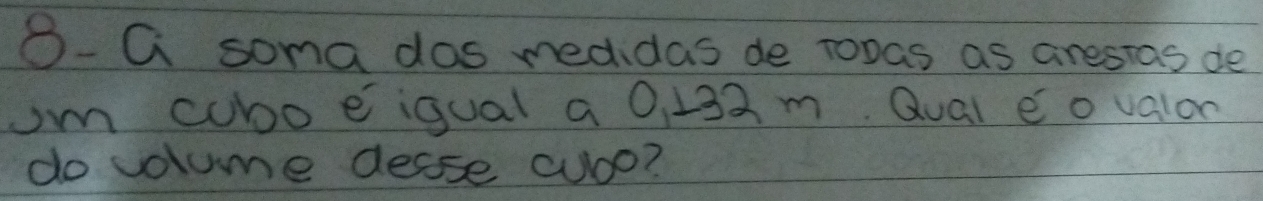 8- A soma das medidas de TODAS as arestas de
um cubo é igual a 0,132 m. Qual é o valor
do volume desse cubo?